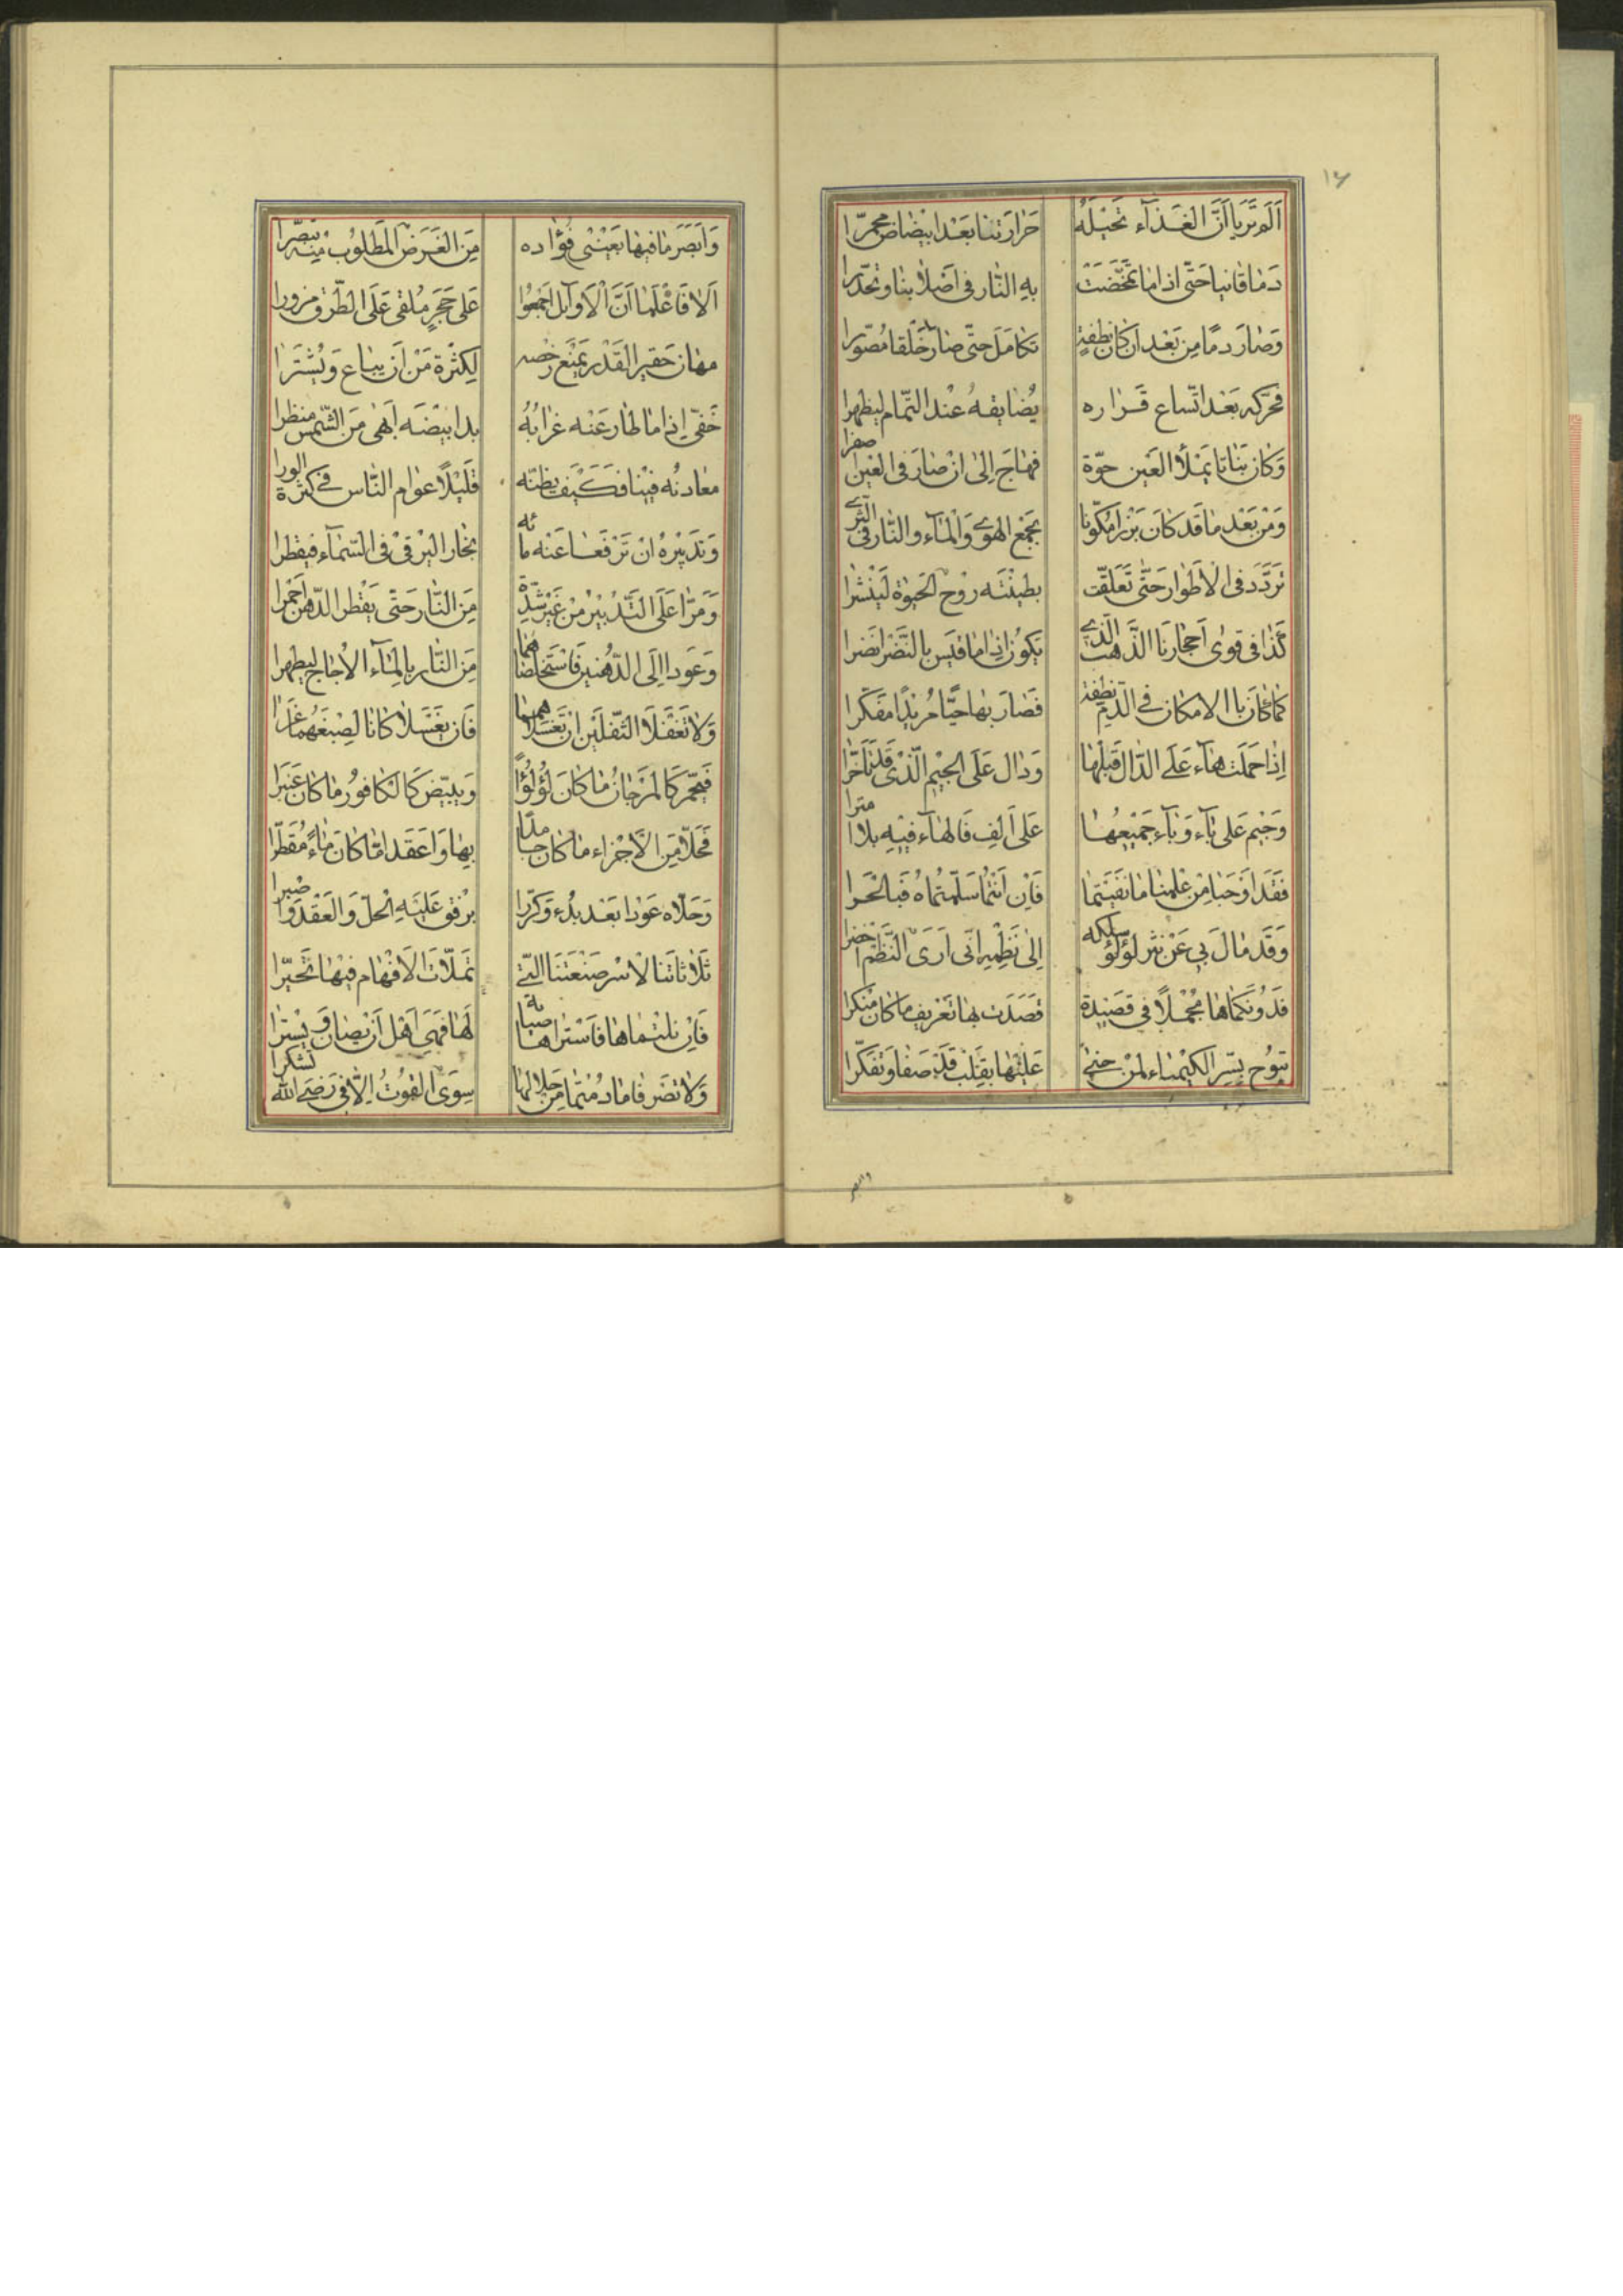 ١٦
اَلَم تَرَيا اَنَّ الغَذآء تَحيْلَهُ حَرارَتنا بَعْدَ ابيْضاض محمرّا
دَمًا قانيا حَتّى اذا ما تمخّضَت بهِ النّار فى اَصْلابنا وتحدّرا
وَصٰارَ دمًا مِن بَعْد ان كان نطفةٍ تكامَلَ حتّى صٰارَ خَلقا مُصوّرا
فحرّكه بَعْد اتّساع قَراره يُضايقهُ عند التّمام ليظهرا
وَكان نَباتا يَمْلأ العَين حوّة فهٰاجَ اِلىٰ انْ صٰارَ فى العَين اصفرا
وَمن بَعْد ما قَد كانَ بَزْرا مكوّنا بجَمْع الهوى وَالمٰآء والنّار فى الثّرى
تَردّدَ فى الاَطوار حَتّى تعَلقّت بطينَته روْح الحَيوٰة ليُنْشرا
كَذا فى قوى اَحجارنَا الذّهَب الّذى يَكوُن اذا ما قيسَ بالنّضْر انضَرا
كما كانَ بالامكان فى الدّيم نطفة فَصٰارَ بها حيّا مُريدًا مفَكّرا
اِذا حَملَت هآء عَلى الدّال قَبلَها وَدال عَلَى الجيْم الّذى قَد تأخّرا
وَجيْم عَلى بآء وَبآء جَميْعُهٰا عَلى اَلِف فالهآء فيْه بلا مترا
فقَد اَوْحَيا مِن عِلمنا ما نفَيتما فَاِن اَنتما سَلّمتُماهُ فَبالحَرا
وَقَد مٰالَ بى عَنْ نثر لؤلؤ سلكه اِلى نَظْمِه انّى اَرَى النَّظم اخضرا
فَدُونكماها مُجْملاً فى قصَيْدة قصَدَت بها تعَريف ما كان منكرا
تبَوُح بسِّر الكيْميٰاء لمَنْ حنىٰ عَليْها بقَلب قَدْ صَفا وَتفكّرا
وابصر
وَاَبصَرَ ما فيها بعَيْنى فُؤاده مِنَ الغَرض المَطلوُب منه تبصّرا
اَلا فَاعْلَما اَنَّ الاَوآيل اَجمعُوا عَلى حَجَرٍ مُلقى عَلَى الطّرق مزورا
مهٰان حَقير القَدْر يمْنَع رخصه لِكثْرة مَنْ اَن يبٰاع وَيُشترَا
خَفىّ اِذا ما طٰارَ عَنْه غرابُهُ بدا بيْضَه اَبهىٰ مِن الشّمس منظرا
معٰادنُه فيْنا فَكَيْفَ يظنّه قَليْلاً عوام النّاس فى كثرة الورا
وَتدبيْرهُ انْ تَرْفعَا عَنه مائه بخار البَرْقىْ فى السّمآء فيقطرا
وَمَرّا عَلَى التّدْبيْر مِنْ غَيْر شدّة مِنَ النّار حَتّى يقْطر الدّهن احمرا
وَعَودا اِلَى الدّهنين فَاسْتَخلصٰاهُما مِنَ النّار بالمآء الاُجاج ليطهرا
وَلاٰ تَغفلَا الثّفلَين انْ تغَسلاهما فَان يغَسلاٰ كانا لصبْغَهُما عَرا
فيَحمّر كَالمَرْجانُ ما كانَ لؤلؤاً وَيبيَّضّ كالكافوُر ما كانَ عَنبَرا
فَحَلاّ مِنَ الاَجْزاء ما كانَ جامدا بها وَاَعقدا مٰا كانَ مٰاءً مُقَطّرا
وَحَلاّه عَوْدا بَعْد بُدء وَكرّرا برفق عَليْهِ الحلّ وَالعَقْد وَاصْبرا
ثَلٰاثاتنا لاسْر صَنْعَتنَا الّتى تَملاّت الاَفهٰام فيْها تحَيّرا
فَاِن نلتُماها فَاستراها صيانة لَها فَهىَ اَهْل اَنْ يصٰان وَيسْترا
وَلاٰ تصَرفا ما دُمْتُما مِن حَلالها سِوَى القوُت اِلّا فى رضَى الله تشكرا